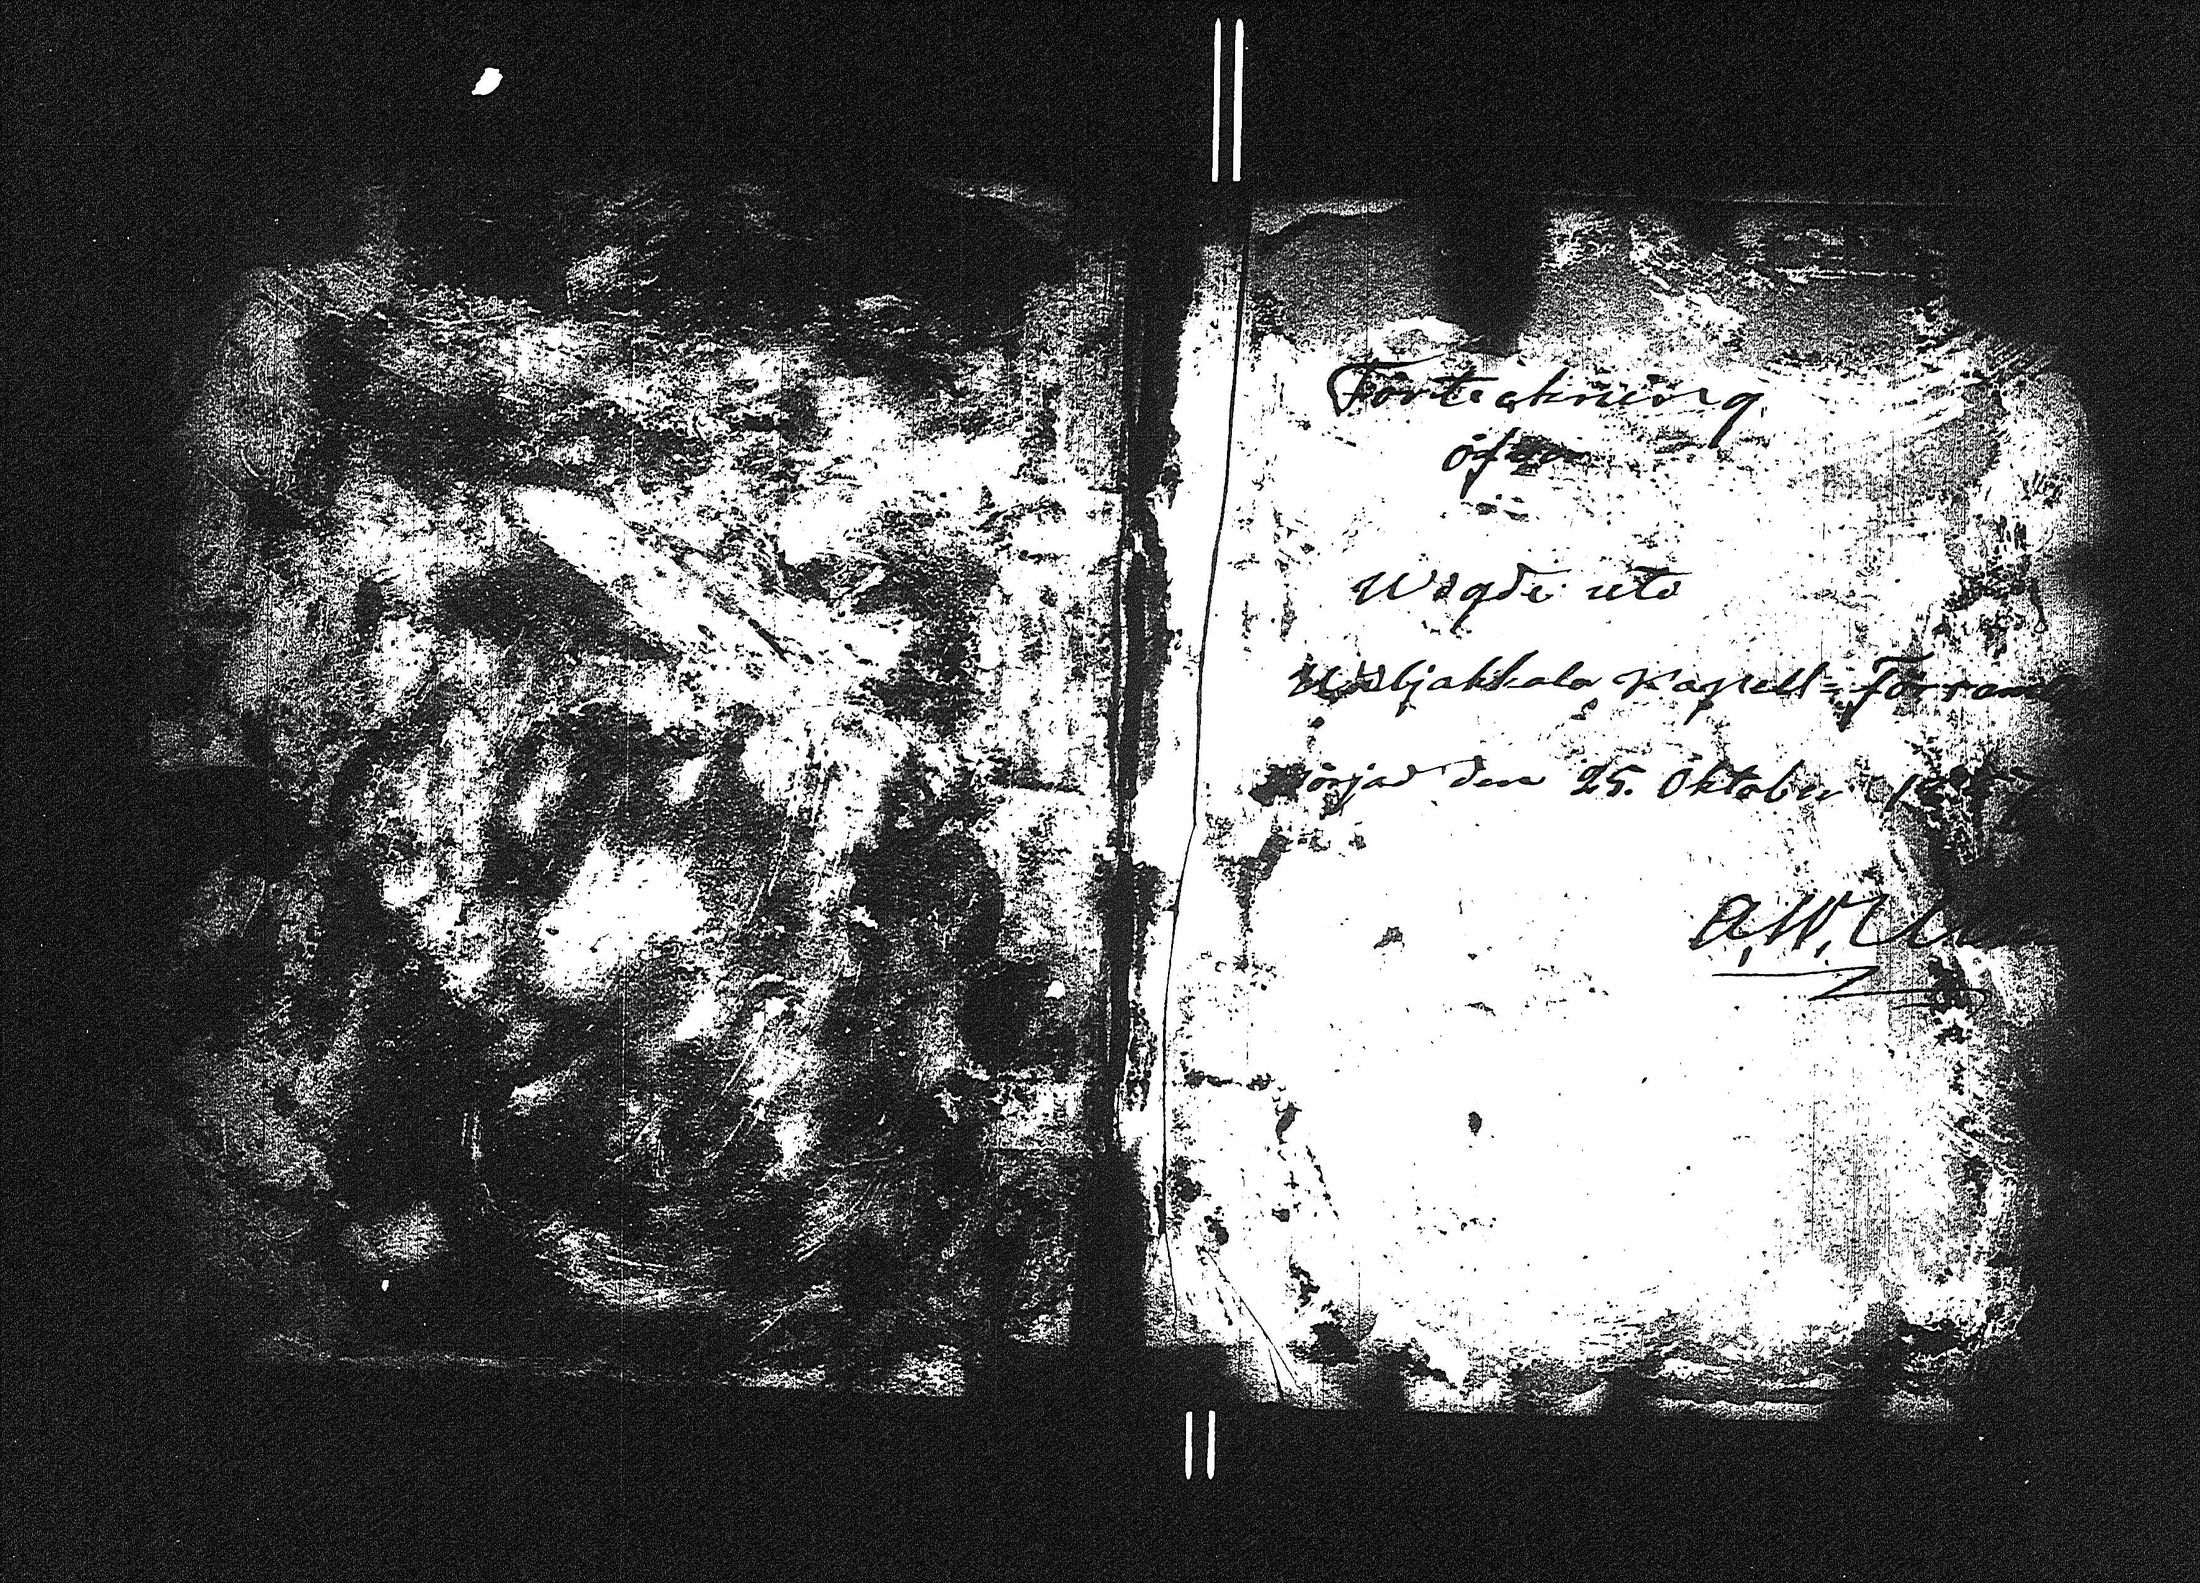 Förteckning
öfver
Wigde uti
Wiljakkala Kapell-Försam
Börjad den 25. Oktober 18
A. W.